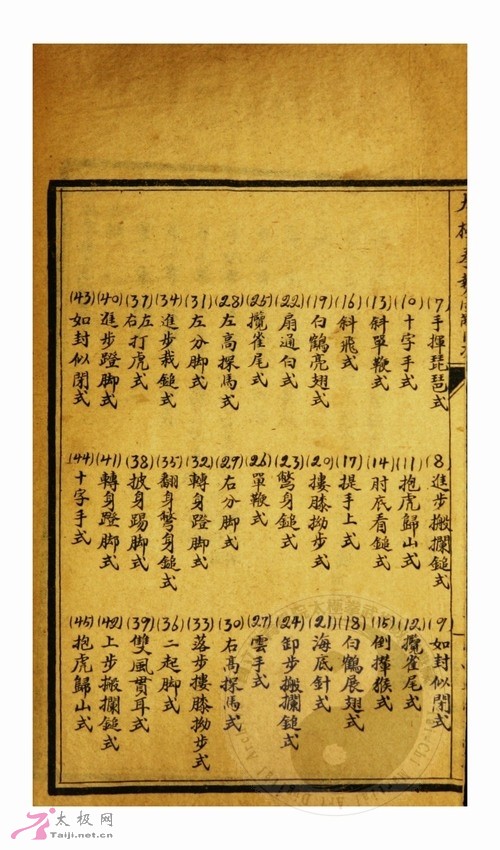 (7)手揮琵琶式
(8)進步搬攔鎚式
(9)如封似閉式
(10)十字手式
(11)抱虎歸山式
(12)攬雀尾式
(13)斜單鞭式
(14)肘底看鎚式
(15)倒攆猴式
(16)斜飛式
(17)提手上式
(18)白鶴展翅式
(19)白鶴亮翅式
(20)摟膝拗步式
(21)海底針式
(22)扇通臂式
(23)鷩身鎚式
(24)卸步搬攔鎚式
(25)攬雀尾式
(26)單鞭式
(27)雲手式
(28)左高探馬式
(29)右分脚式
(30)右高探馬式
(31)左分脚式
(32)轉身蹬脚式
(33)落步摟膝拗步式
(34)進步栽鎚式
(35)翻身鷩身鎚式
(36)二起脚式
(37)左右打虎式
(38)披身踢脚式
(39)雙風貫耳式
(40)進步蹬脚式
(41)轉身蹬脚式
(42)上步搬攔鎚式
(43)如封似閉式
(44)十字手式
(45)抱虎歸山式
太极网
Taiji.net.cn